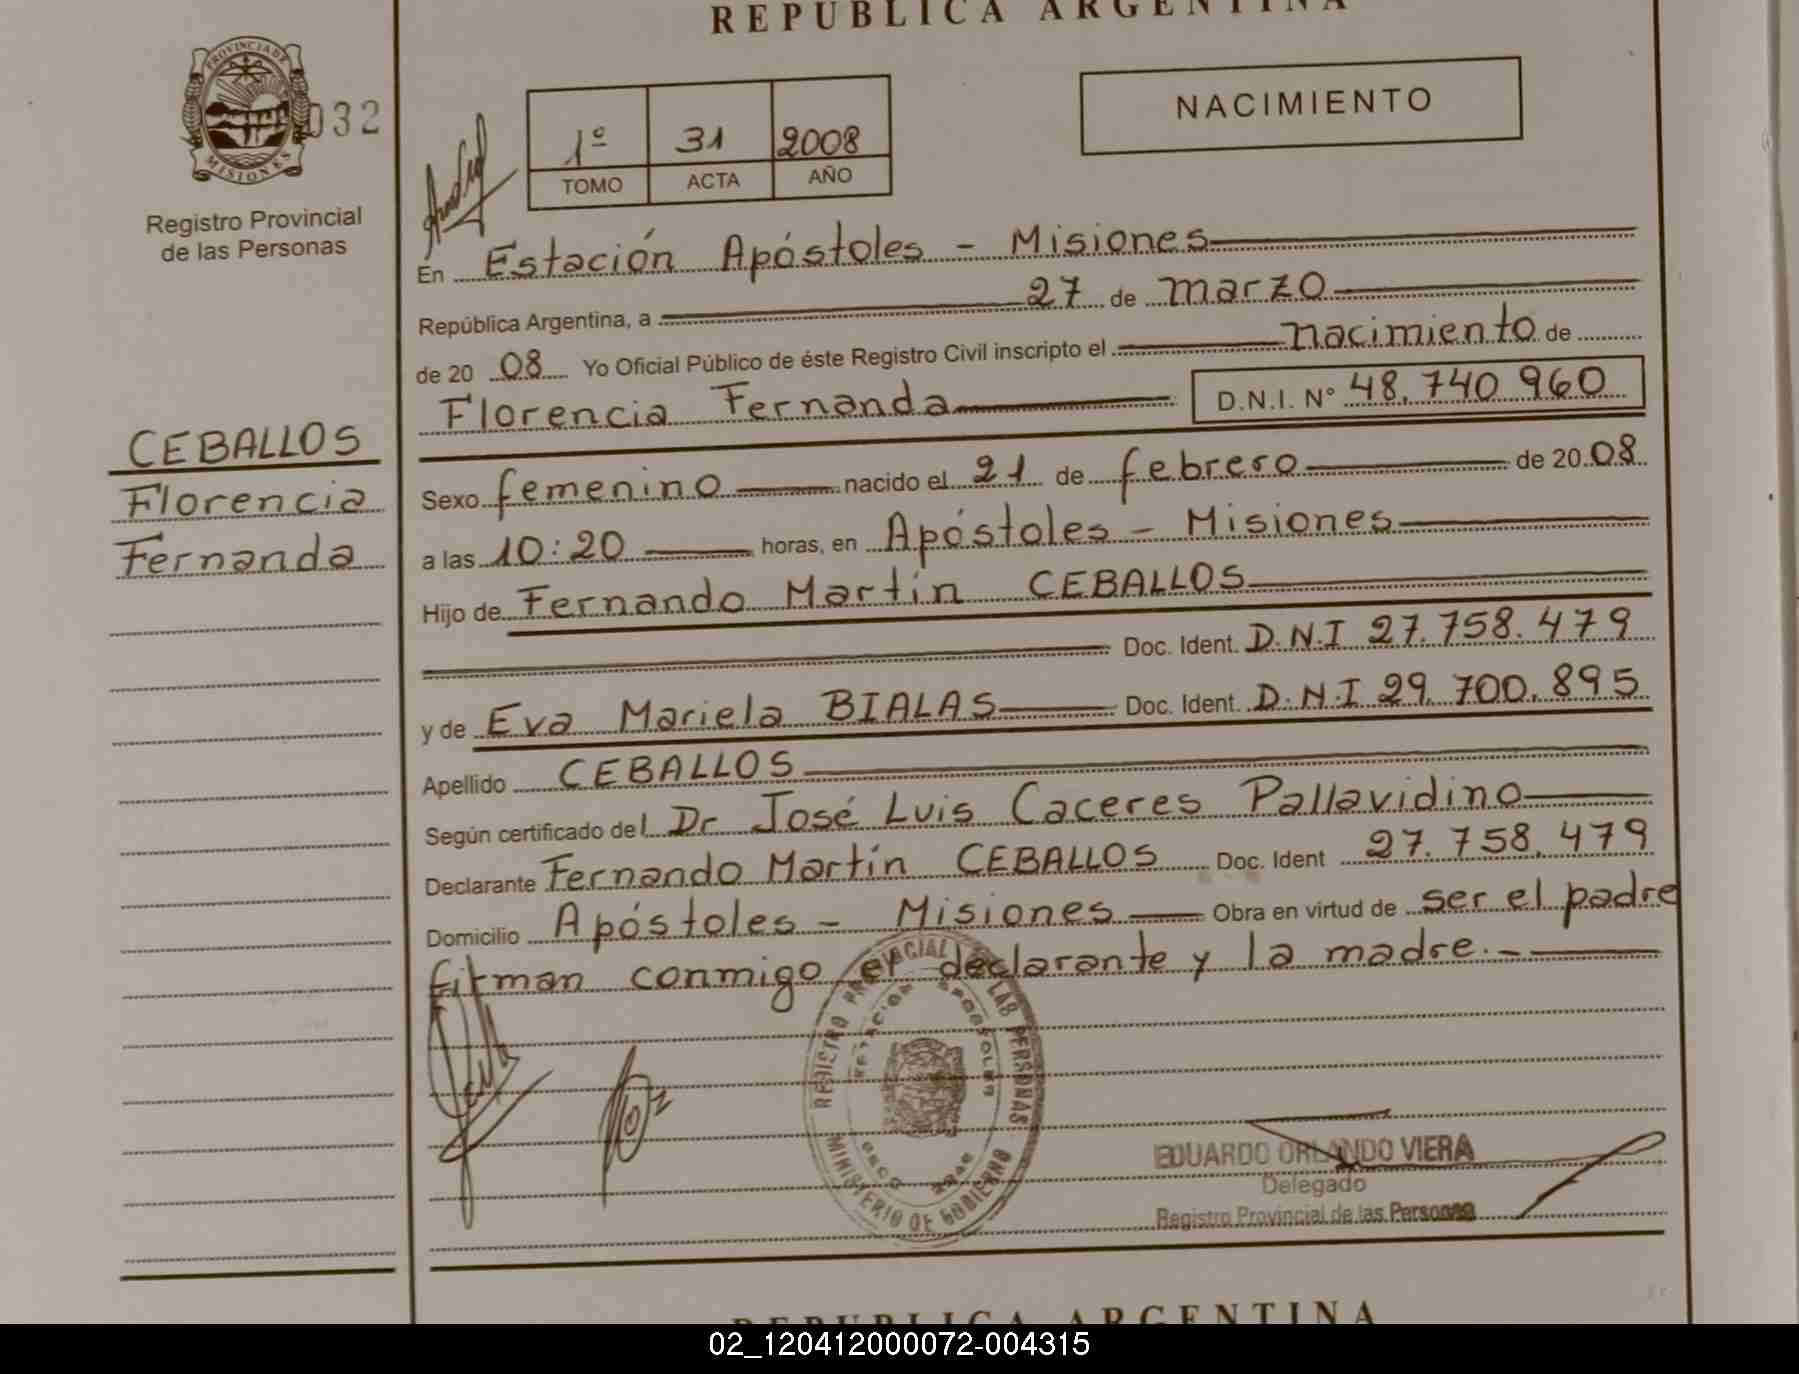 REPUBLICA ARGENTINA
PROVINCIA DE MISIONES
032
Registro Provincial
de las Personas
NACIMIENTO
1º 31 2008
TOMO ACTA AÑO
En Estación Apóstoles - Misiones
República Argentina, a 27 de marzo
de 2008 Yo Oficial Público de éste Registro Civil inscripto el nacimiento de
Florencia Fernanda D.N.I. Nº 48.740.960
CEBALLOS
Florencia
Fernanda
Sexo femenino nacido el 21 de febrero de 2008
a las 10:20 horas, en Apóstoles - Misiones
Hijo de Fernando Martín CEBALLOS
Doc. Ident. D.N.I 27.758.479
y de Eva Mariela BIALAS Doc. Ident. D.N.I 29.700.895
Apellido CEBALLOS
Según certificado del Dr José Luis Caceres Pallavidino
Declarante Fernando Martín CEBALLOS Doc. Ident 27.758.479
Domicilio Apóstoles - Misiones Obra en virtud de ser el padre
firman conmigo el declarante y la madre.-
REGISTRO PROVINCIAL DE LAS PERSONAS
ESTACION APOSTOLES
MINISTERIO DE GOBIERNO
EDUARDO ORLANDO VIERA
Delegado
Registro Provincial de las Personas
REPUBLICA ARGENTINA
02_120412000072-004315